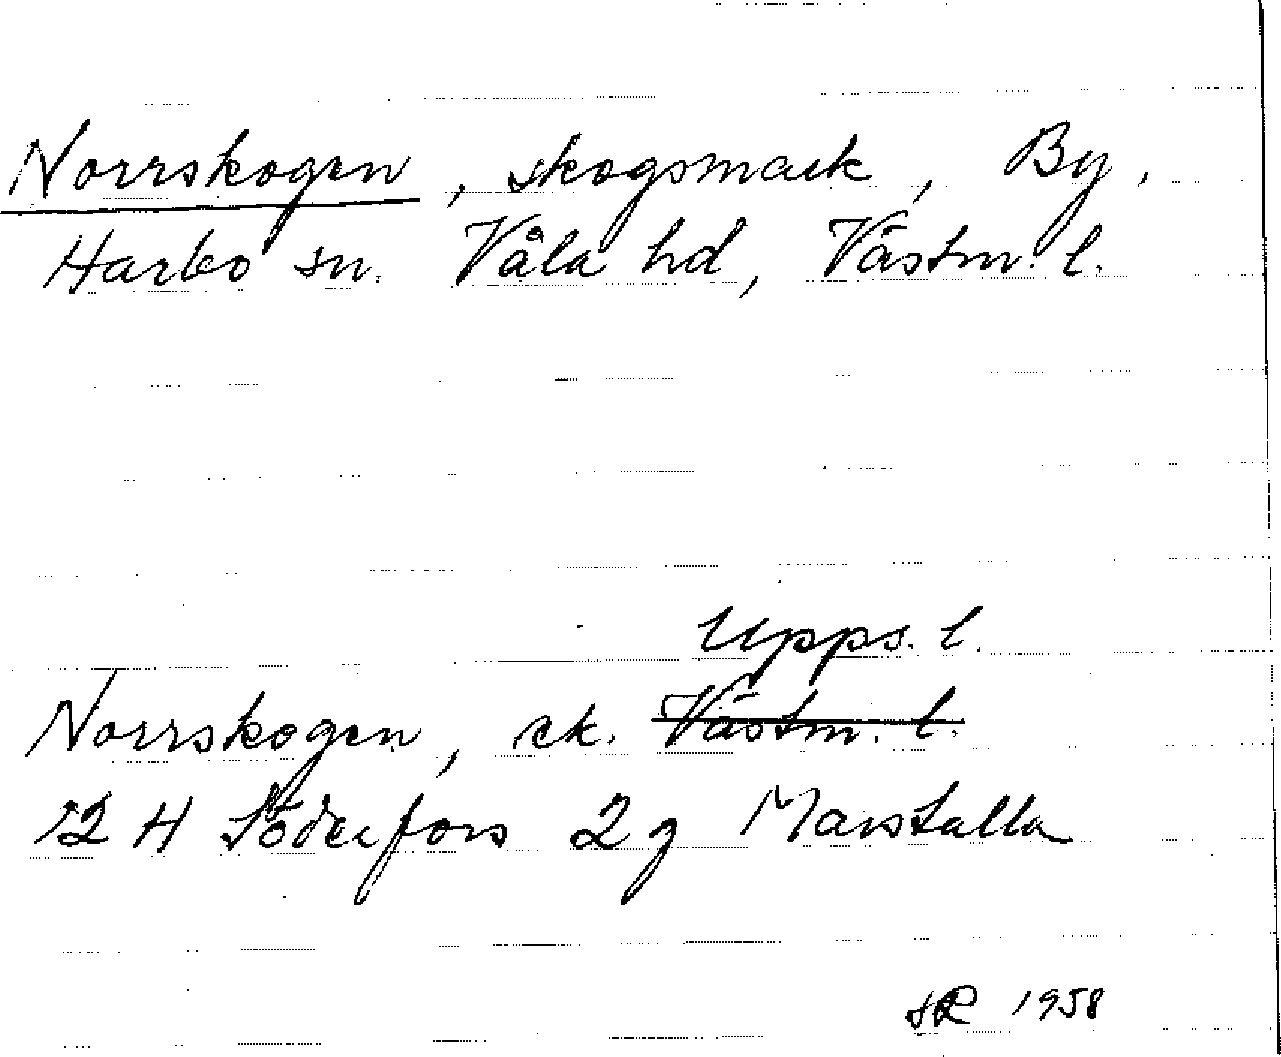 Norrskogen, skogsmark, By,
Harbo sn. Våla hd, Västm. l.
Upps. l.
Norrskogen, ek. Västm. l.
12 H Söderfors 2g Marstalla
HR 1958